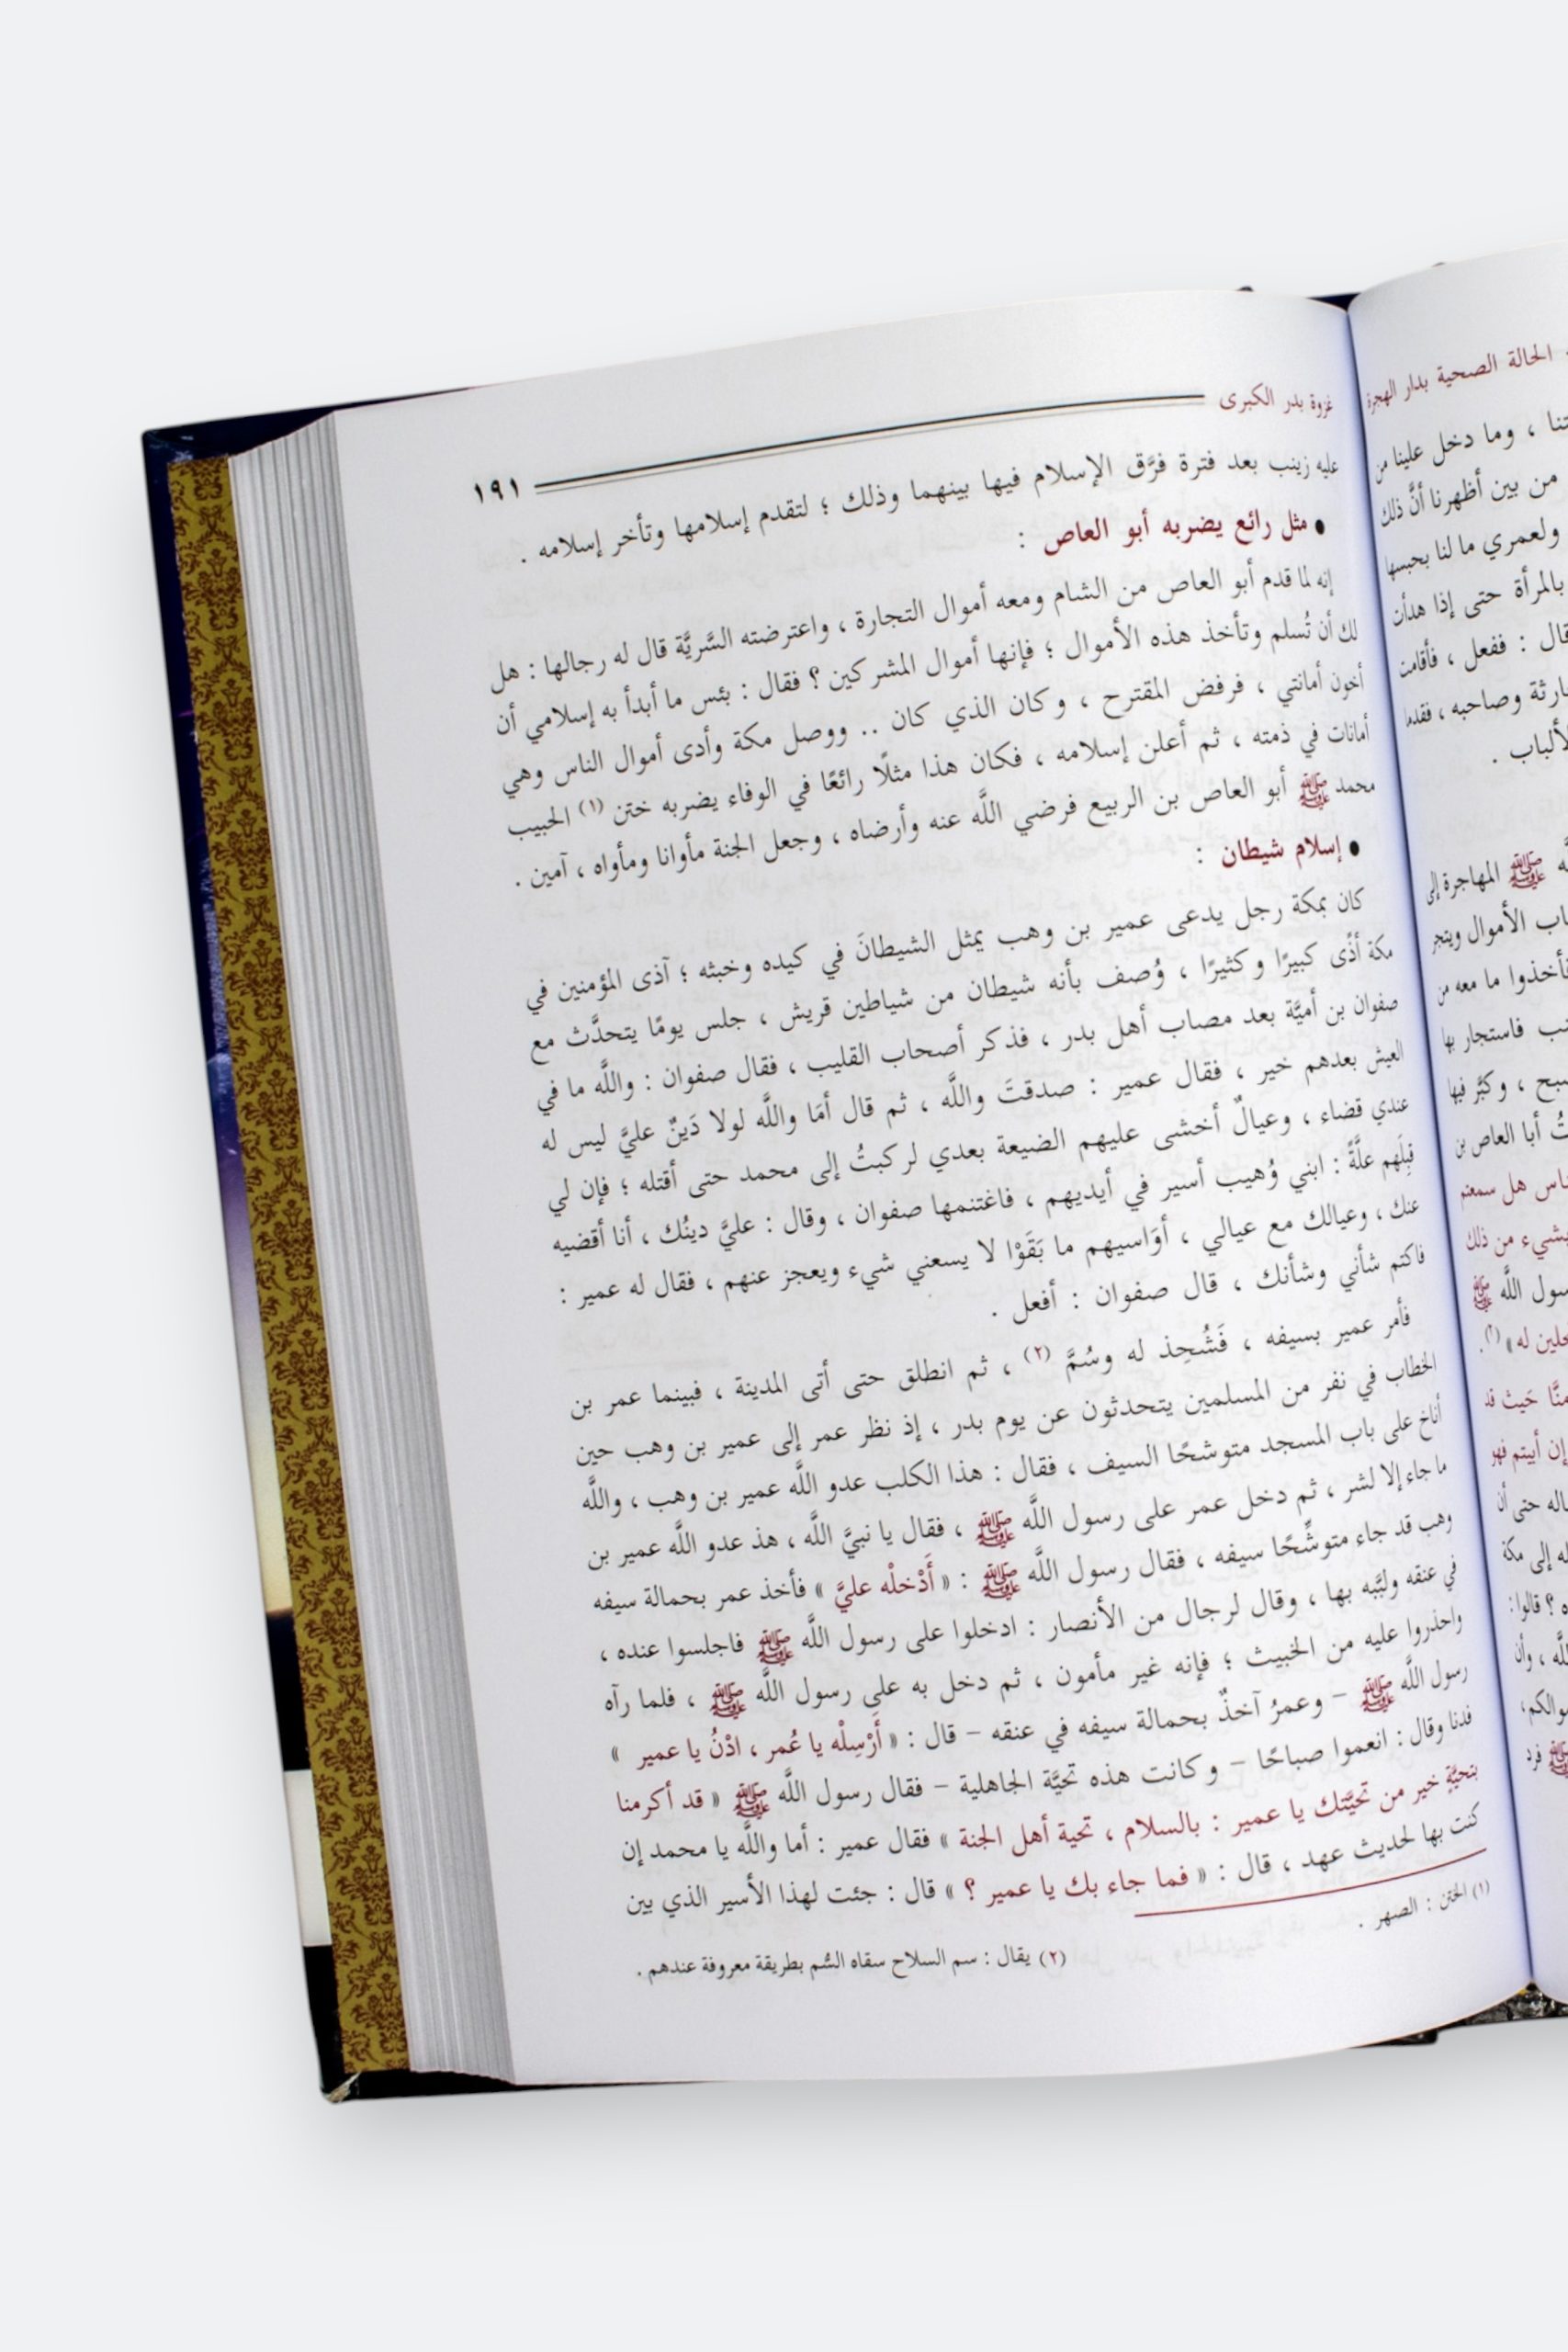 الحالة الصحية بدار الهجرة
، وما دخل علينا من
من بين أظهرنا أنَّ ذلك
ولعمري ما لنا بحبسها
بالمرأة حتى إذا هدأت
قال : ففعل ، فأقامت
وصاحبه ، فقدما
الألباب .
ﷺ المهاجرة إلى
الأموال ويتجر
فأخذوا ما معه من
فاستجار بها
، وكبَّر فيها
أبا العاص بن
هل سمعتم
بشيء من ذلك
رسول اللَّه ﷺ
له » (٢).
منَّا حَيث قد
إن أبيتم فهو
حتى أن
إلى مكة
؟ قالوا :
، وأن
ﷺ فرد
غزوة بدر الكبرى ١٩١
عليه زينب بعد فترة فرَّق الإسلام فيها بينهما وذلك ؛ لتقدم إسلامها وتأخر إسلامه .
● مثل رائع يضربه أبو العاص :
إنه لما قدم أبو العاص من الشام ومعه أموال التجارة ، واعترضته السَّريَّة قال له رجالها : هل
لك أن تُسلم وتأخذ هذه الأموال ؛ فإنها أموال المشركين ؟ فقال : بئس ما أبدأ به إسلامي أن
أخون أمانتي ، فرفض المقترح ، وكان الذي كان .. ووصل مكة وأدى أموال الناس وهي
أمانات في ذمته ، ثم أعلن إسلامه ، فكان هذا مثلًا رائعًا في الوفاء يضربه ختن (١) الحبيب
محمد ﷺ أبو العاص بن الربيع فرضي اللَّه عنه وأرضاه ، وجعل الجنة مأوانا ومأواه ، آمين .
● إسلام شيطان :
كان بمكة رجل يدعى عمير بن وهب يمثل الشيطانَ في كيده وخبثه ؛ آذى المؤمنين في
مكة أذًى كبيرًا وكثيرًا ، وُصف بأنه شيطان من شياطين قريش ، جلس يومًا يتحدَّث مع
صفوان بن أميَّة بعد مصاب أهل بدر ، فذكر أصحاب القليب ، فقال صفوان : واللَّه ما في
العيش بعدهم خير ، فقال عمير : صدقتَ واللَّه ، ثم قال أمَا واللَّه لولا دَينٌ عليَّ ليس له
عندي قضاء ، وعيالٌ أخشى عليهم الضيعة بعدي لركبتُ إلى محمد حتى أقتله ؛ فإن لي
قِبلَهم علَّةً : ابني وُهيب أسير في أيديهم ، فاغتنمها صفوان ، وقال : عليَّ دينُك ، أنا أقضيه
عنك ، وعيالك مع عيالي ، أوَاسيهم ما بَقَوْا لا يسعني شيء ويعجز عنهم ، فقال له عمير :
فاكتم شأني وشأنك ، قال صفوان : أفعل .
فأمر عمير بسيفه ، فَشُحِذ له وسُمَّ (٢) ، ثم انطلق حتى أتى المدينة ، فبينما عمر بن
الخطاب في نفر من المسلمين يتحدثون عن يوم بدر ، إذ نظر عمر إلى عمير بن وهب حين
أناخ على باب المسجد متوشحًا السيف ، فقال : هذا الكلب عدو اللَّه عمير بن وهب ، واللَّه
ما جاء إلا لشر ، ثم دخل عمر على رسول اللَّه ﷺ ، فقال يا نبيَّ اللَّه ، هذ عدو اللَّه عمير بن
وهب قد جاء متوشِّحًا سيفه ، فقال رسول اللَّه ﷺ : « أَدْخلْه عليَّ » فأخذ عمر بحمالة سيفه
في عنقه ولبَّبه بها ، وقال لرجال من الأنصار : ادخلوا على رسول اللَّه ﷺ فاجلسوا عنده ،
واحذروا عليه من الخبيث ؛ فإنه غير مأمون ، ثم دخل به على رسول اللَّه ﷺ ، فلما رآه
رسول اللَّه ﷺ – وعمرُ آخذٌ بحمالة سيفه في عنقه – قال : « أَرْسِلْه يا عُمر ، ادْنُ يا عمير »
فدنا وقال : انعموا صباحًا – وكانت هذه تحيَّة الجاهلية – فقال رسول اللَّه ﷺ « قد أكرمنا
بتحيَّةٍ خير من تحيَّتك يا عمير : بالسلام ، تحية أهل الجنة » فقال عمير : أما واللَّه يا محمد إن
كنت بها لحديث عهد ، قال : « فما جاء بك يا عمير ؟ » قال : جئت لهذا الأسير الذي بين
(١) الختن : الصهر .
(٢) يقال : سم السلاح سقاه السُّم بطريقة معروفة عندهم .